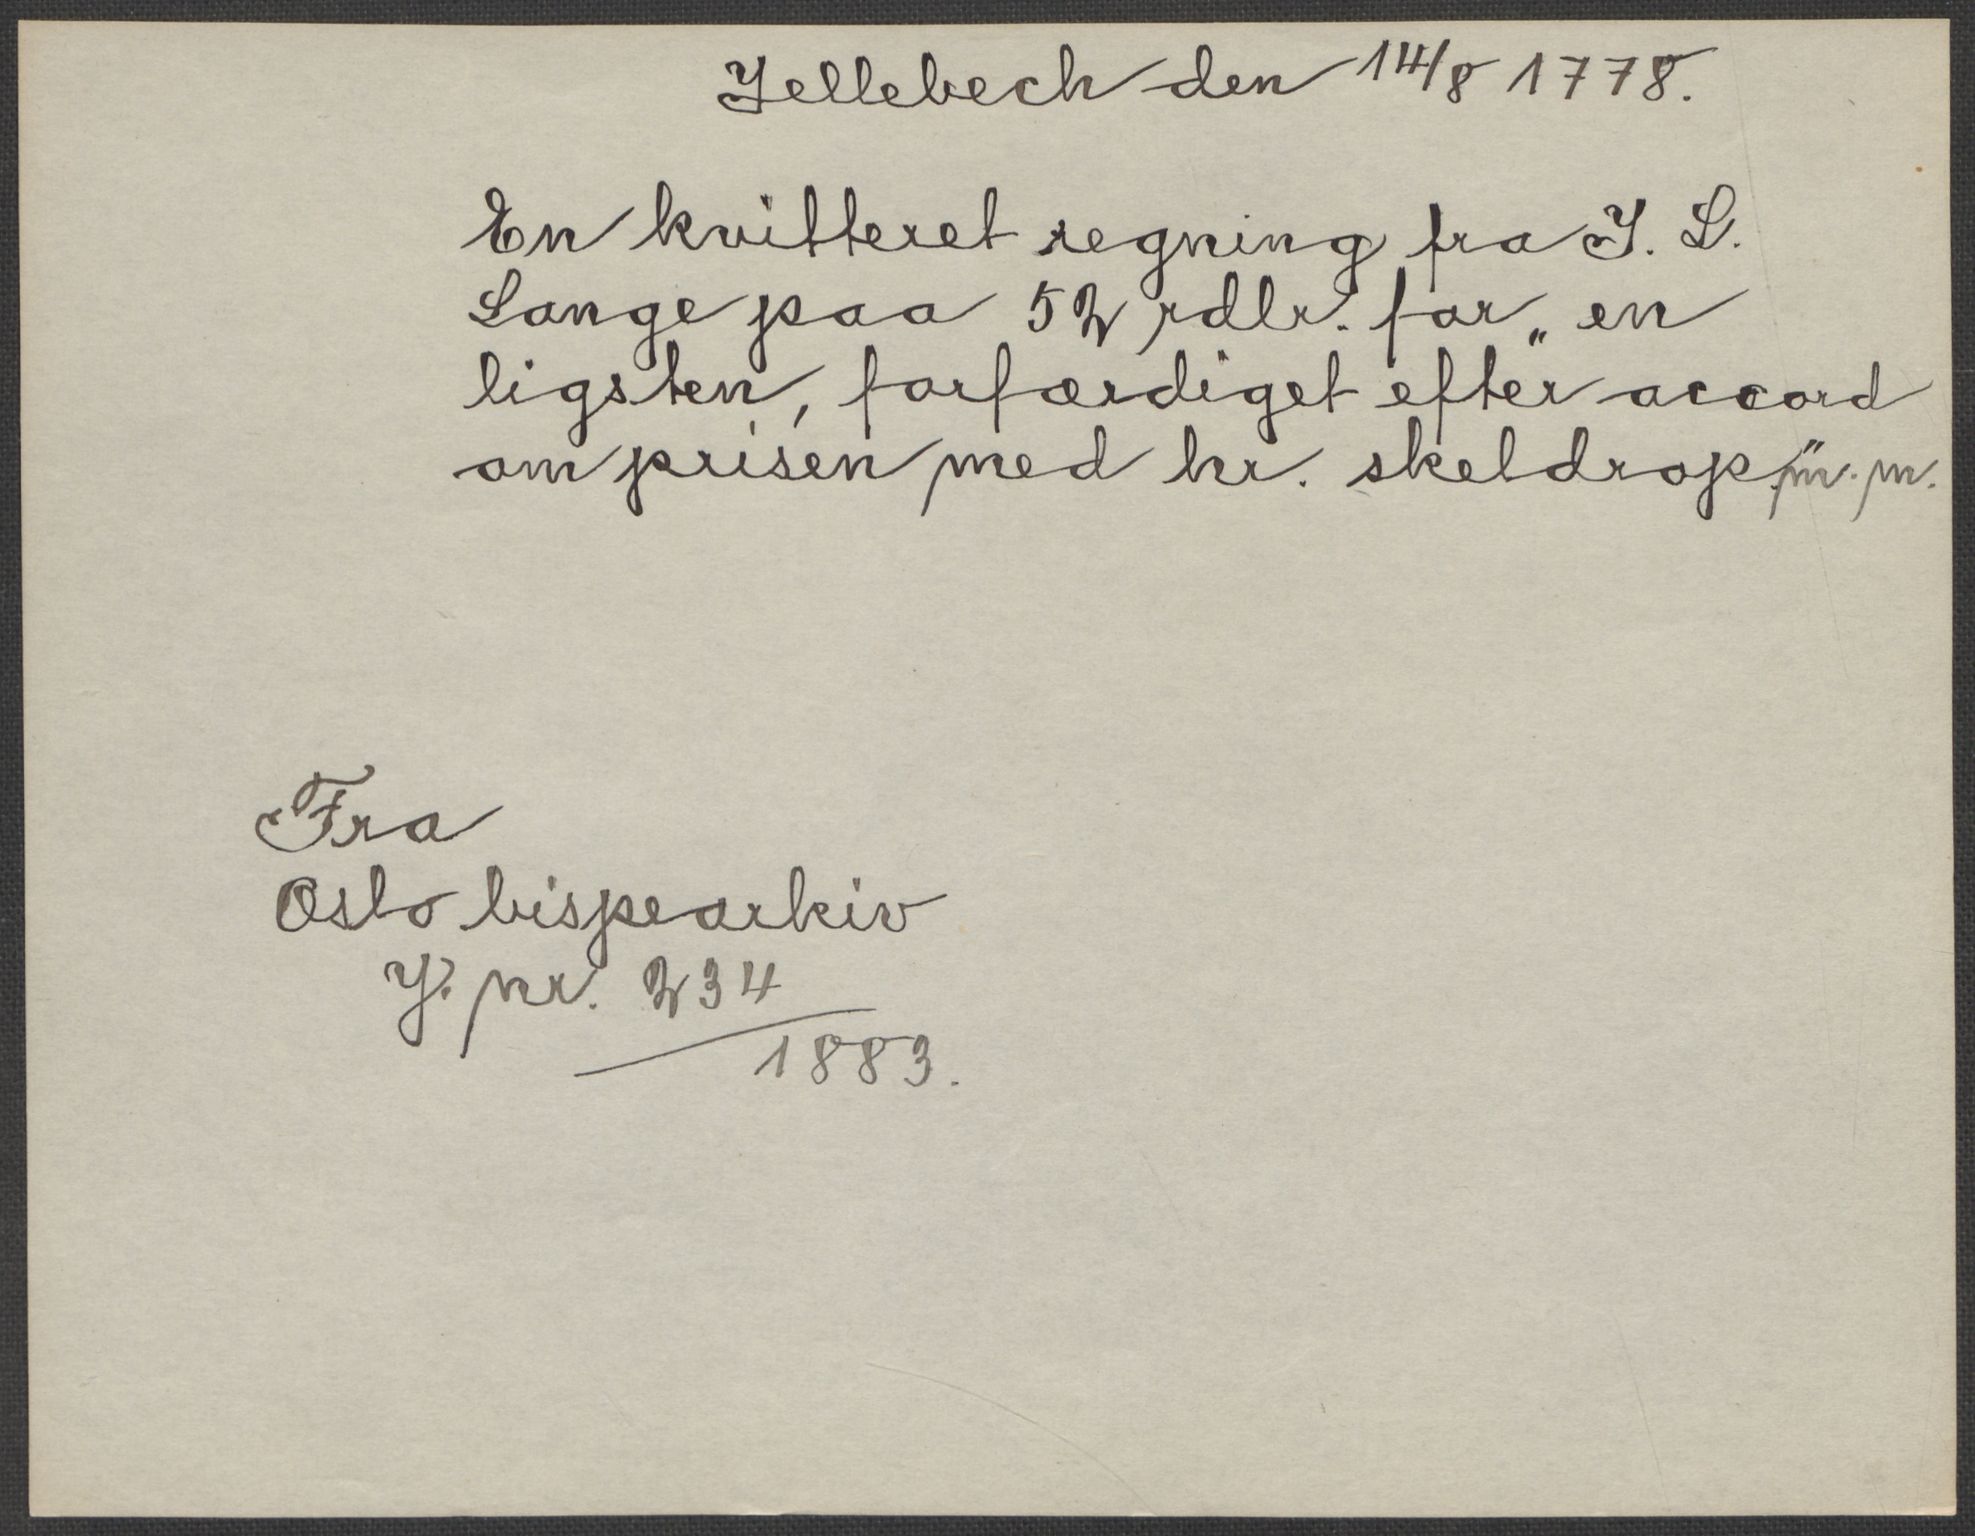 Jellebech den 14/8 1778.
En kvitteret regning fra J. L.
Lange paa 52 rdlr. for „en
ligsten, forfærdiget efter accord
om prisen med hr. skeldrop." m. m.
Fra
Oslo bispearkiv
J. nr. 234
1883.